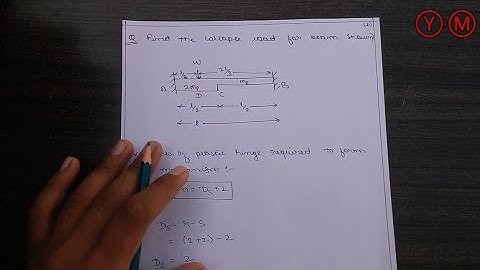 (2)
Y M
Q Find the collapse load for beam shown
W
l/3 2l/3
A 2Mp Mp B
D C
l/2 l/2
l
of plastic hinge required to form
mechanism :-
n = Ds + 1
Ds = r - s
= (2+2) - 2
Ds = 2